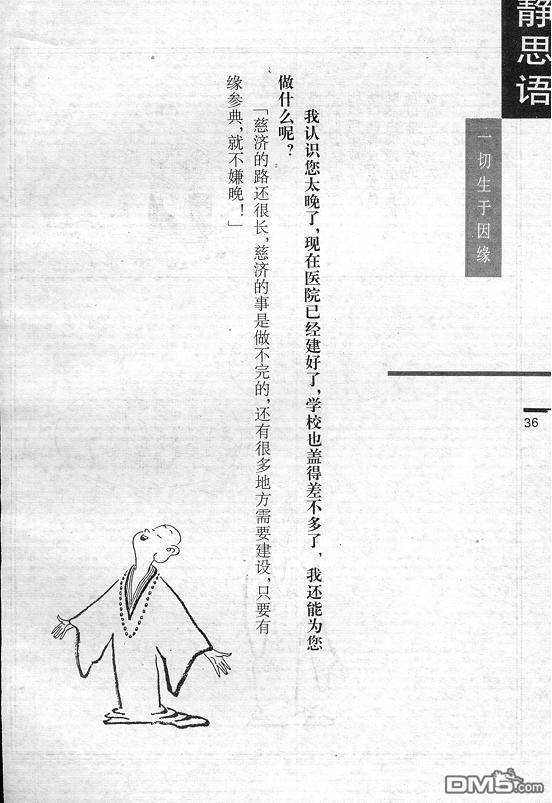 静思语
一切生于因缘
36
我认识您太晚了，现在医院已经建好了，学校也盖得差不多了，我还能为您
做什么呢？
「慈济的路还很长，慈济的事是做不完的，还有很多地方需要建设，只要有
缘参典，就不嫌晚！」
DM5.com